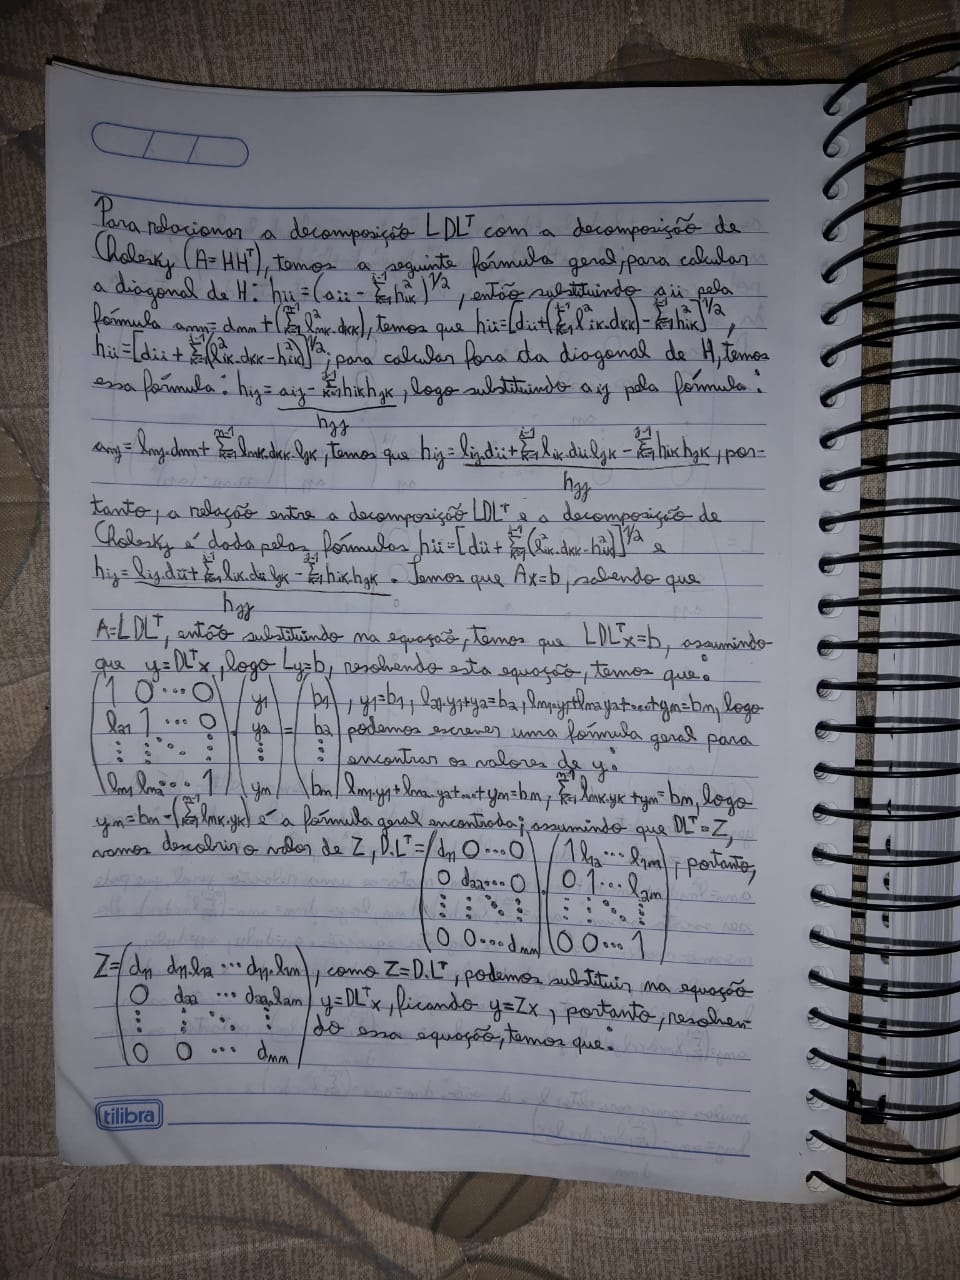 Para relacionar a decomposição LDLᵀ com a decomposição de
Cholesky (A=HHᵀ), temos a seguinte fórmula geral, para calcular
a diagonal de H: hii=(aii - Σₖ₌₁ⁱ⁻¹ h²ik)^1/2, então substituindo aii pela
fórmula ann=dnn+(Σₖ₌₁ⁿ⁻¹ l²nk.dkk), temos que hii=[dii+(Σₖ₌₁ⁱ⁻¹ l²ik.dkk) - Σₖ₌₁ⁱ⁻¹ h²ik]^1/2,
hii=[dii + Σₖ₌₁ⁱ⁻¹(l²ik.dkk-h²ik)]^1/2; para calcular fora da diagonal de H, temos
essa fórmula: hij= (aij - Σₖ₌₁ʲ⁻¹ hik hjk)/hjj, logo substituindo aij pela fórmula:
anj=lnj.dnn+Σₖ₌₁ⁿ⁻¹ lnk.dkk.ljk, temos que hij= (lij.dii+Σₖ₌₁ⁱ⁻¹ lik.dii ljk - Σₖ₌₁ʲ⁻¹ hik hjk)/hjj, por-
tanto, a relação entre a decomposição LDLᵀ e a decomposição de
Cholesky é dada pelas fórmulas hii=[dii + Σₖ₌₁ⁱ⁻¹(l²ik.dkk-h²ik)]^1/2 e
hij= (lij.dii+Σₖ₌₁ⁱ⁻¹ lik.dii ljk - Σₖ₌₁ʲ⁻¹ hik.hjk)/hjj. Temos que Ax=b, sabendo que
A=LDLᵀ, então substituindo na equação, temos que LDLᵀx=b, assumindo
que y=DLᵀx, logo Ly=b, resolvendo esta equação, temos que:
(1 0 ... 0) (y1) (b1), y1=b1, l21.y1+y2=b2, ln1.y1+ln2.y2+...+yn=bn, logo
(l21 1 ... 0) . (y2) = (b2) podemos escrever uma fórmula geral para
(⋮ ⋮ ⋱ ⋮) (⋮) (⋮) encontrar os valores de y:
(ln1 ln2 ... 1) (yn) (bn) ln1.y1+ln2.y2+...+yn=bn, Σₖ₌₁ⁿ⁻¹ lnk.yk+yn=bn, logo
yn=bn-(Σₖ₌₁ⁿ⁻¹ lnk.yk) é a fórmula geral encontrada; assumindo que DLᵀ=Z,
vamos descobrir o valor de Z, D.Lᵀ= (d11 0 ... 0) . (1 l12 ... l1n), portanto,
(0 d22 ... 0) (0 1 ... l2n)
(⋮ ⋮ ⋱ ⋮) (⋮ ⋮ ⋱ ⋮)
(0 0 ... dnn) (0 0 ... 1)
Z= (d11 d11.l12 ... d11.l1n), como Z=D.Lᵀ, podemos substituir na equação
(0 d22 ... d22.l2n) y=DLᵀx, ficando y=Zx, portanto, resolven-
(⋮ ⋮ ⋱ ⋮) do essa equação, temos que:
(0 0 ... dnn)
tilibra